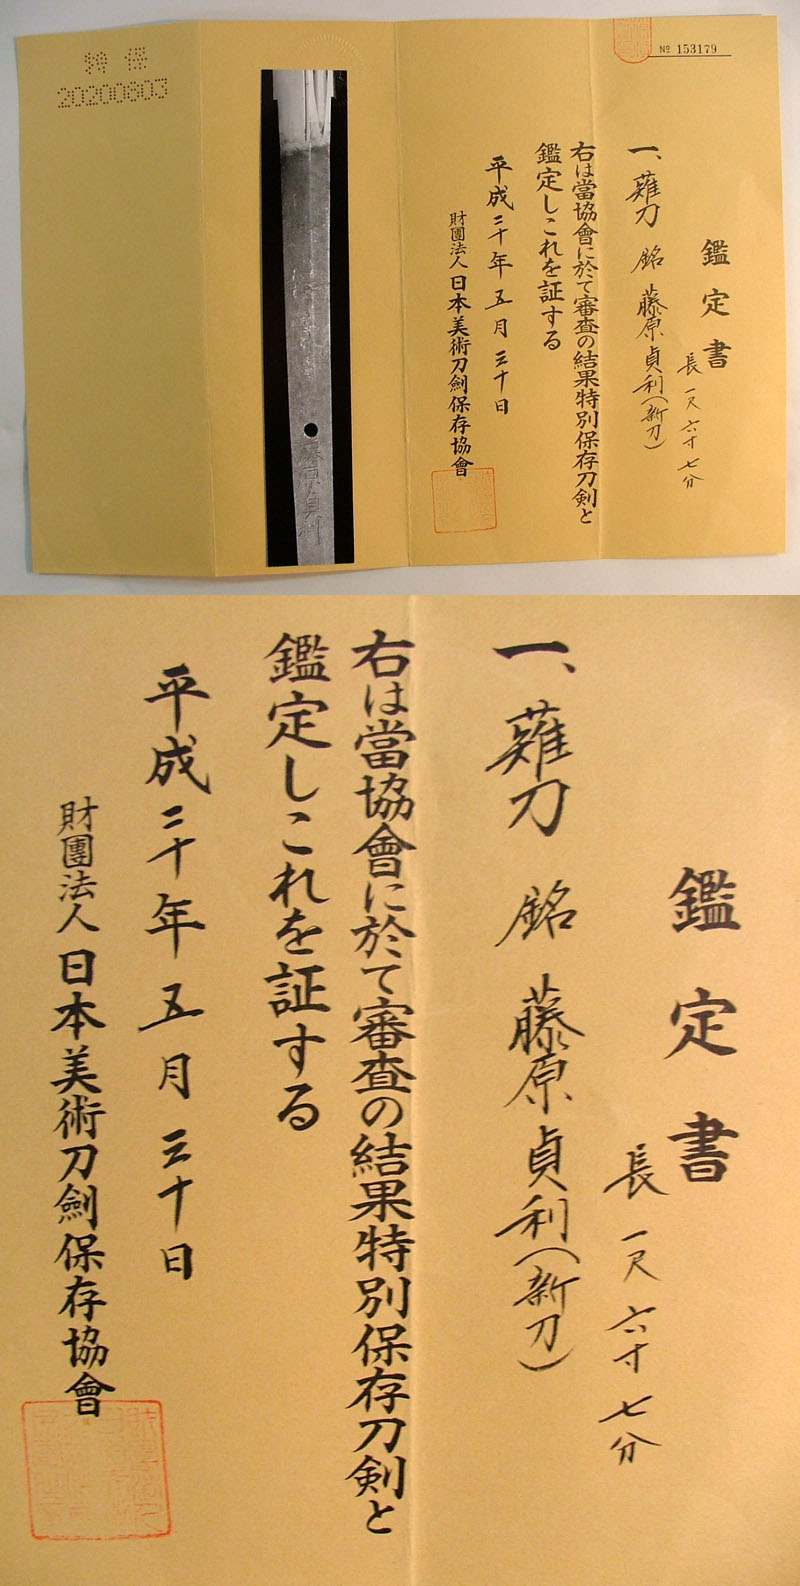 № 153179
鑑定書
長 一尺六寸七分
一、薙刀 銘 藤原貞利(新刀)
右は當協會に於て審査の結果特別保存刀剣と
鑑定しこれを証する
平成二十年五月三十日
財團法人日本美術刀劍保存協會
藤原貞利
特保
20200803
鑑定書
長 一尺六寸七分
一、薙刀 銘 藤原貞利(新刀)
右は當協會に於て審査の結果特別保存刀剣と
鑑定しこれを証する
平成二十年五月三十日
財團法人日本美術刀劍保存協會